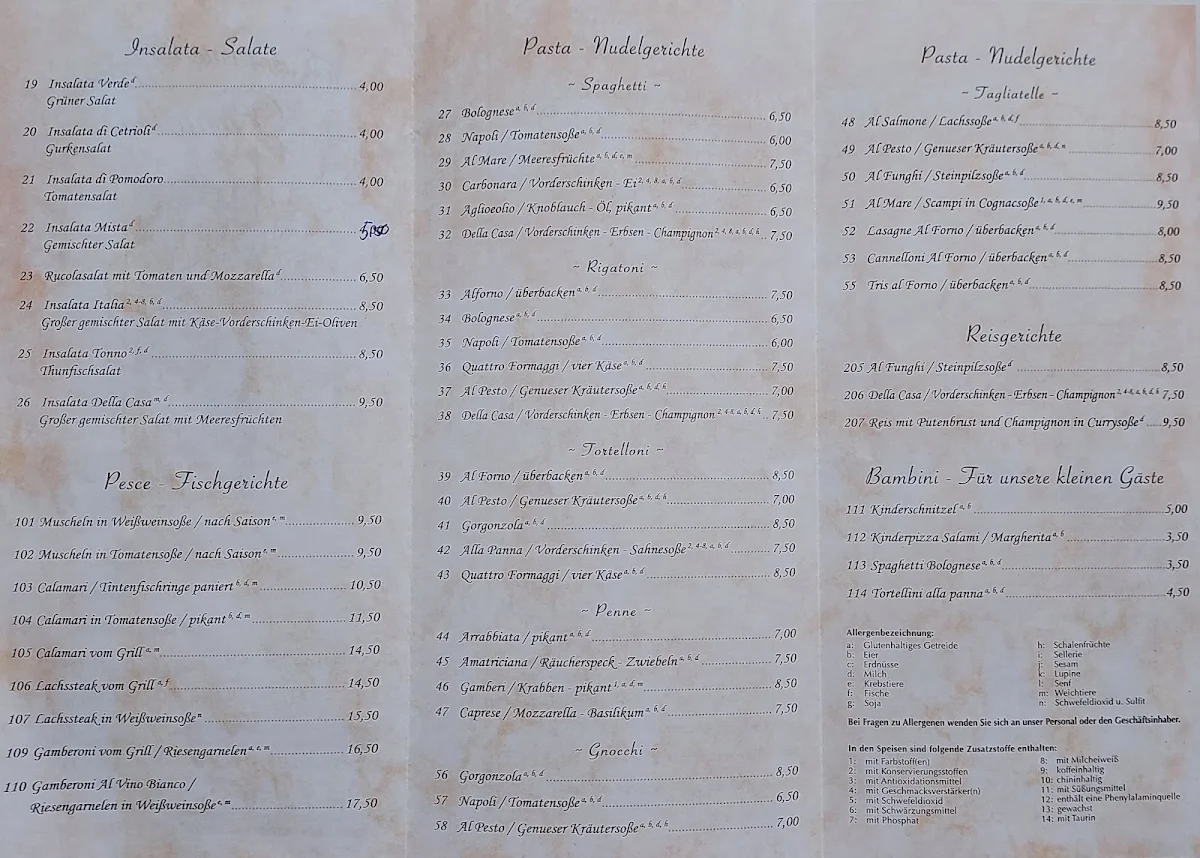 Insalata - Salate
19 Insalata Verde d 4,00
Grüner Salat
20 Insalata di Cetrioli d 4,00
Gurkensalat
21 Insalata di Pomodoro 4,00
Tomatensalat
22 Insalata Mista d
Gemischter Salat
23 Rucolasalat mit Tomaten und Mozzarella d 6,50
24 Insalata Italia 2, 4-8, b, d 8,50
Großer gemischter Salat mit Käse-Vorderschinken-Ei-Oliven
25 Insalata Tonno 2, f, d 8,50
Thunfischsalat
26 Insalata Della Casa m, d 9,50
Großer gemischter Salat mit Meeresfrüchten
Pesce - Fischgerichte
101 Muscheln in Weißweinsoße / nach Saison e, m 9,50
102 Muscheln in Tomatensoße / nach Saison e, m 9,50
103 Calamari / Tintenfischringe paniert b, d, m 10,50
104 Calamari in Tomatensoße / pikant b, d, m 11,50
105 Calamari vom Grill a, m 14,50
106 Lachssteak vom Grill a, f 14,50
107 Lachssteak in Weißweinsoße n 15,50
109 Gamberoni vom Grill / Riesengarnelen a, e, m 16,50
110 Gamberoni Al Vino Bianco /
Riesengarnelen in Weißweinsoße e, m 17,50
Pasta - Nudelgerichte
~ Spaghetti ~
27 Bolognese a, b, d 6,50
28 Napoli / Tomatensoße a, b, d 6,00
29 Al Mare / Meeresfrüchte a, b, d, e, m 7,50
30 Carbonara / Vorderschinken - Ei 2, 4, 8, a, b, d 6,50
31 Aglioeolio / Knoblauch - Öl, pikant a, b, d 6,50
32 Della Casa / Vorderschinken - Erbsen - Champignon 2, 4, 8, a, b, d, h 7,50
~ Rigatoni ~
33 Alforno / überbacken a, b, d 7,50
34 Bolognese a, b, d 6,50
35 Napoli / Tomatensoße a, b, d 6,00
36 Quattro Formaggi / vier Käse a, b, d 7,50
37 Al Pesto / Genueser Kräutersoße a, b, d, h 7,00
38 Della Casa / Vorderschinken - Erbsen - Champignon 2, 4-8, a, b, d, h 7,50
~ Tortelloni ~
39 Al Forno / überbacken a, b, d 8,50
40 Al Pesto / Genueser Kräutersoße a, b, d, h 7,00
41 Gorgonzola a, b, d 8,50
42 Alla Panna / Vorderschinken - Sahnesoße 2, 4-8, a, b, d 7,50
43 Quattro Formaggi / vier Käse a, b, d 8,50
~ Penne ~
44 Arrabbiata / pikant a, b, d 7,00
45 Amatriciana / Räucherspeck - Zwiebeln a, b, d 7,50
46 Gamberi / Krabben - pikant 1, a, d, m 8,50
47 Caprese / Mozzarella - Basilikum a, b, d 7,50
~ Gnocchi ~
56 Gorgonzola a, b, d 8,50
57 Napoli / Tomatensoße a, b, d 6,50
58 Al Pesto / Genueser Kräutersoße a, b, d, h 7,00
Pasta - Nudelgerichte
~ Tagliatelle ~
48 Al Salmone / Lachssoße a, b, d, f 8,50
49 Al Pesto / Genueser Kräutersoße a, b, d, n 7,00
50 Al Funghi / Steinpilzsoße a, b, d 8,50
51 Al Mare / Scampi in Cognacsoße 1, a, b, d, e, m 9,50
52 Lasagne Al Forno / überbacken a, b, d 8,00
53 Cannelloni Al Forno / überbacken a, b, d 8,50
55 Tris al Forno / überbacken a, b, d 8,50
Reisgerichte
205 Al Funghi / Steinpilzsoße d 8,50
206 Della Casa / Vorderschinken - Erbsen - Champignon 2, 4-8, a, b, d, h 7,50
207 Reis mit Putenbrust und Champignon in Currysoße d 9,50
Bambini - Für unsere kleinen Gäste
111 Kinderschnitzel a, b 5,00
112 Kinderpizza Salami / Margherita a, b 3,50
113 Spaghetti Bolognese a, b, d 3,50
114 Tortellini alla panna a, b, d 4,50
Allergenbezeichnung:
a: Glutenhaltiges Getreide
b: Eier
c: Erdnüsse
d: Milch
e: Krebstiere
f: Fische
g: Soja
h: Schalenfrüchte
i: Sellerie
j: Sesam
k: Lupine
l: Senf
m: Weichtiere
n: Schwefeldioxid u. Sulfit
Bei Fragen zu Allergenen wenden Sie sich an unser Personal oder den Geschäftsinhaber.
In den Speisen sind folgende Zusatzstoffe enthalten:
1: mit Farbstoff(en)
2: mit Konservierungsstoffen
3: mit Antioxidationsmittel
4: mit Geschmacksverstärker(n)
5: mit Schwefeldioxid
6: mit Schwärzungsmittel
7: mit Phosphat
8: mit Milcheiweiß
9: koffeinhaltig
10: chininhaltig
11: mit Süßungsmittel
12: enthält eine Phenylalaminquelle
13: gewachst
14: mit Taurin